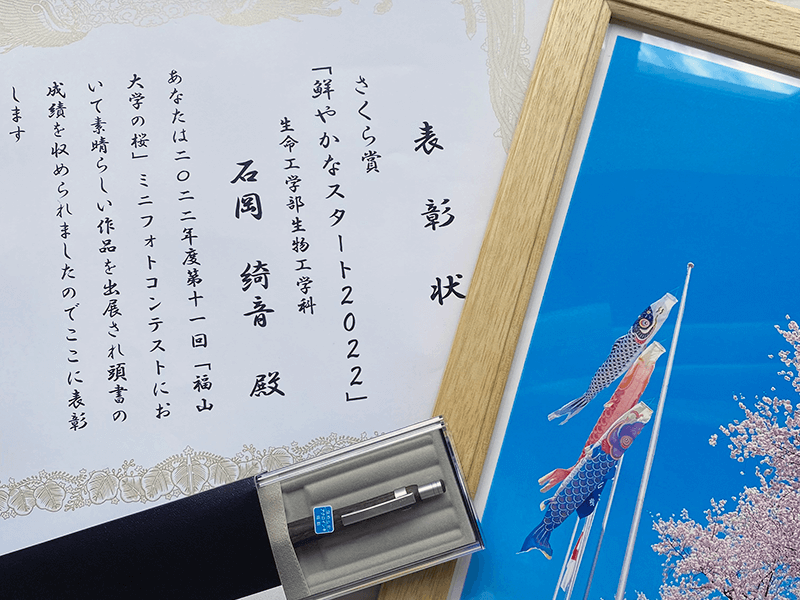 表彰状
さくら賞
「鮮やかなスタート2022」
生命工学部生物工学科
石岡 綺音 殿
あなたは二〇二二年度第十一回「福山
大学の桜」ミニフォトコンテストにお
いて素晴らしい作品を出展され頭書の
成績を収められましたのでここに表彰
します